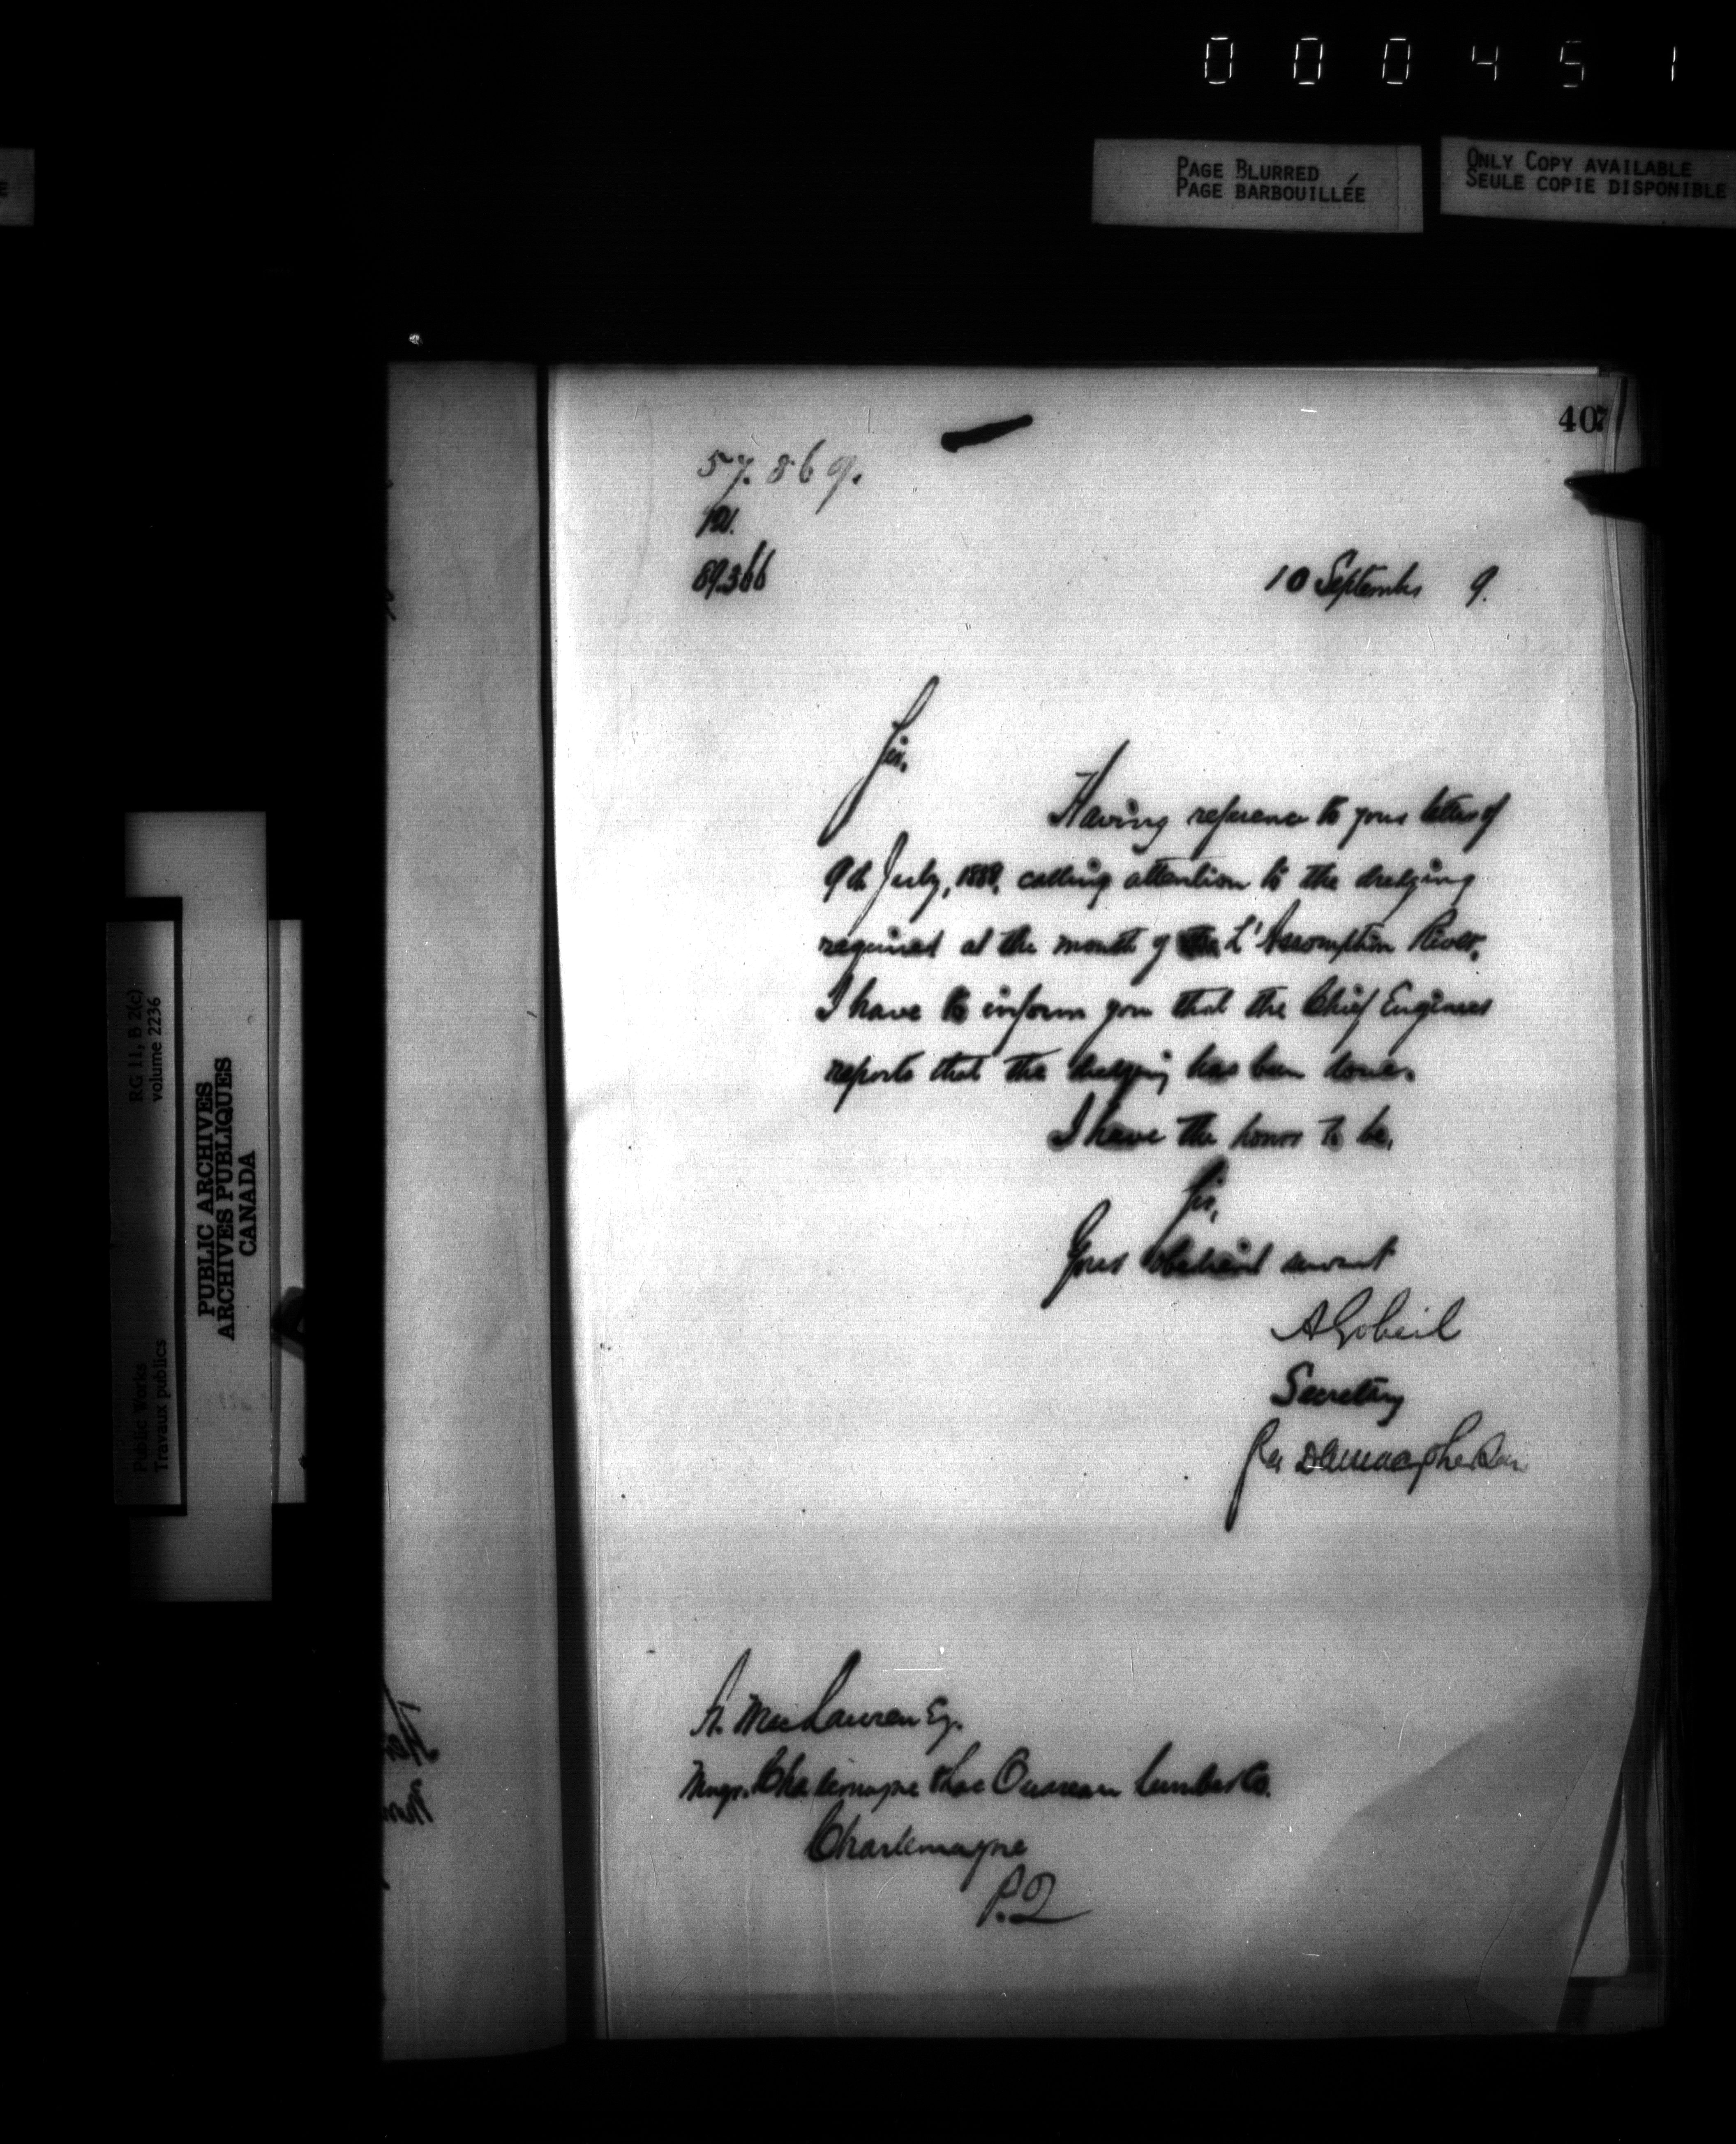 000451
PAGE BLURRED
PAGE BARBOUILLÉE
ONLY COPY AVAILABLE
SEULE COPIE DISPONIBLE
E
407
57.869.
89366
10 September 9.
Sir,
Having reference to your letter of
9th July, 1888, calling attention to the dredging
required at the mouth of the L'Assomption River,
I have to inform you that the Chief Engineer
reports that the dredging has been done.
I have the honor to be,
Sir,
Your obedient servant
A Gobeil
Secretary
Per
A. MacLauren Esq.
Mngr. Charlemagne & Lac Ouareau Lumber Co.
Charlemagne
P.Q
RG 11, B 2(c)
volume 2236
Public Works
Travaux publics
PUBLIC ARCHIVES
ARCHIVES PUBLIQUES
CANADA